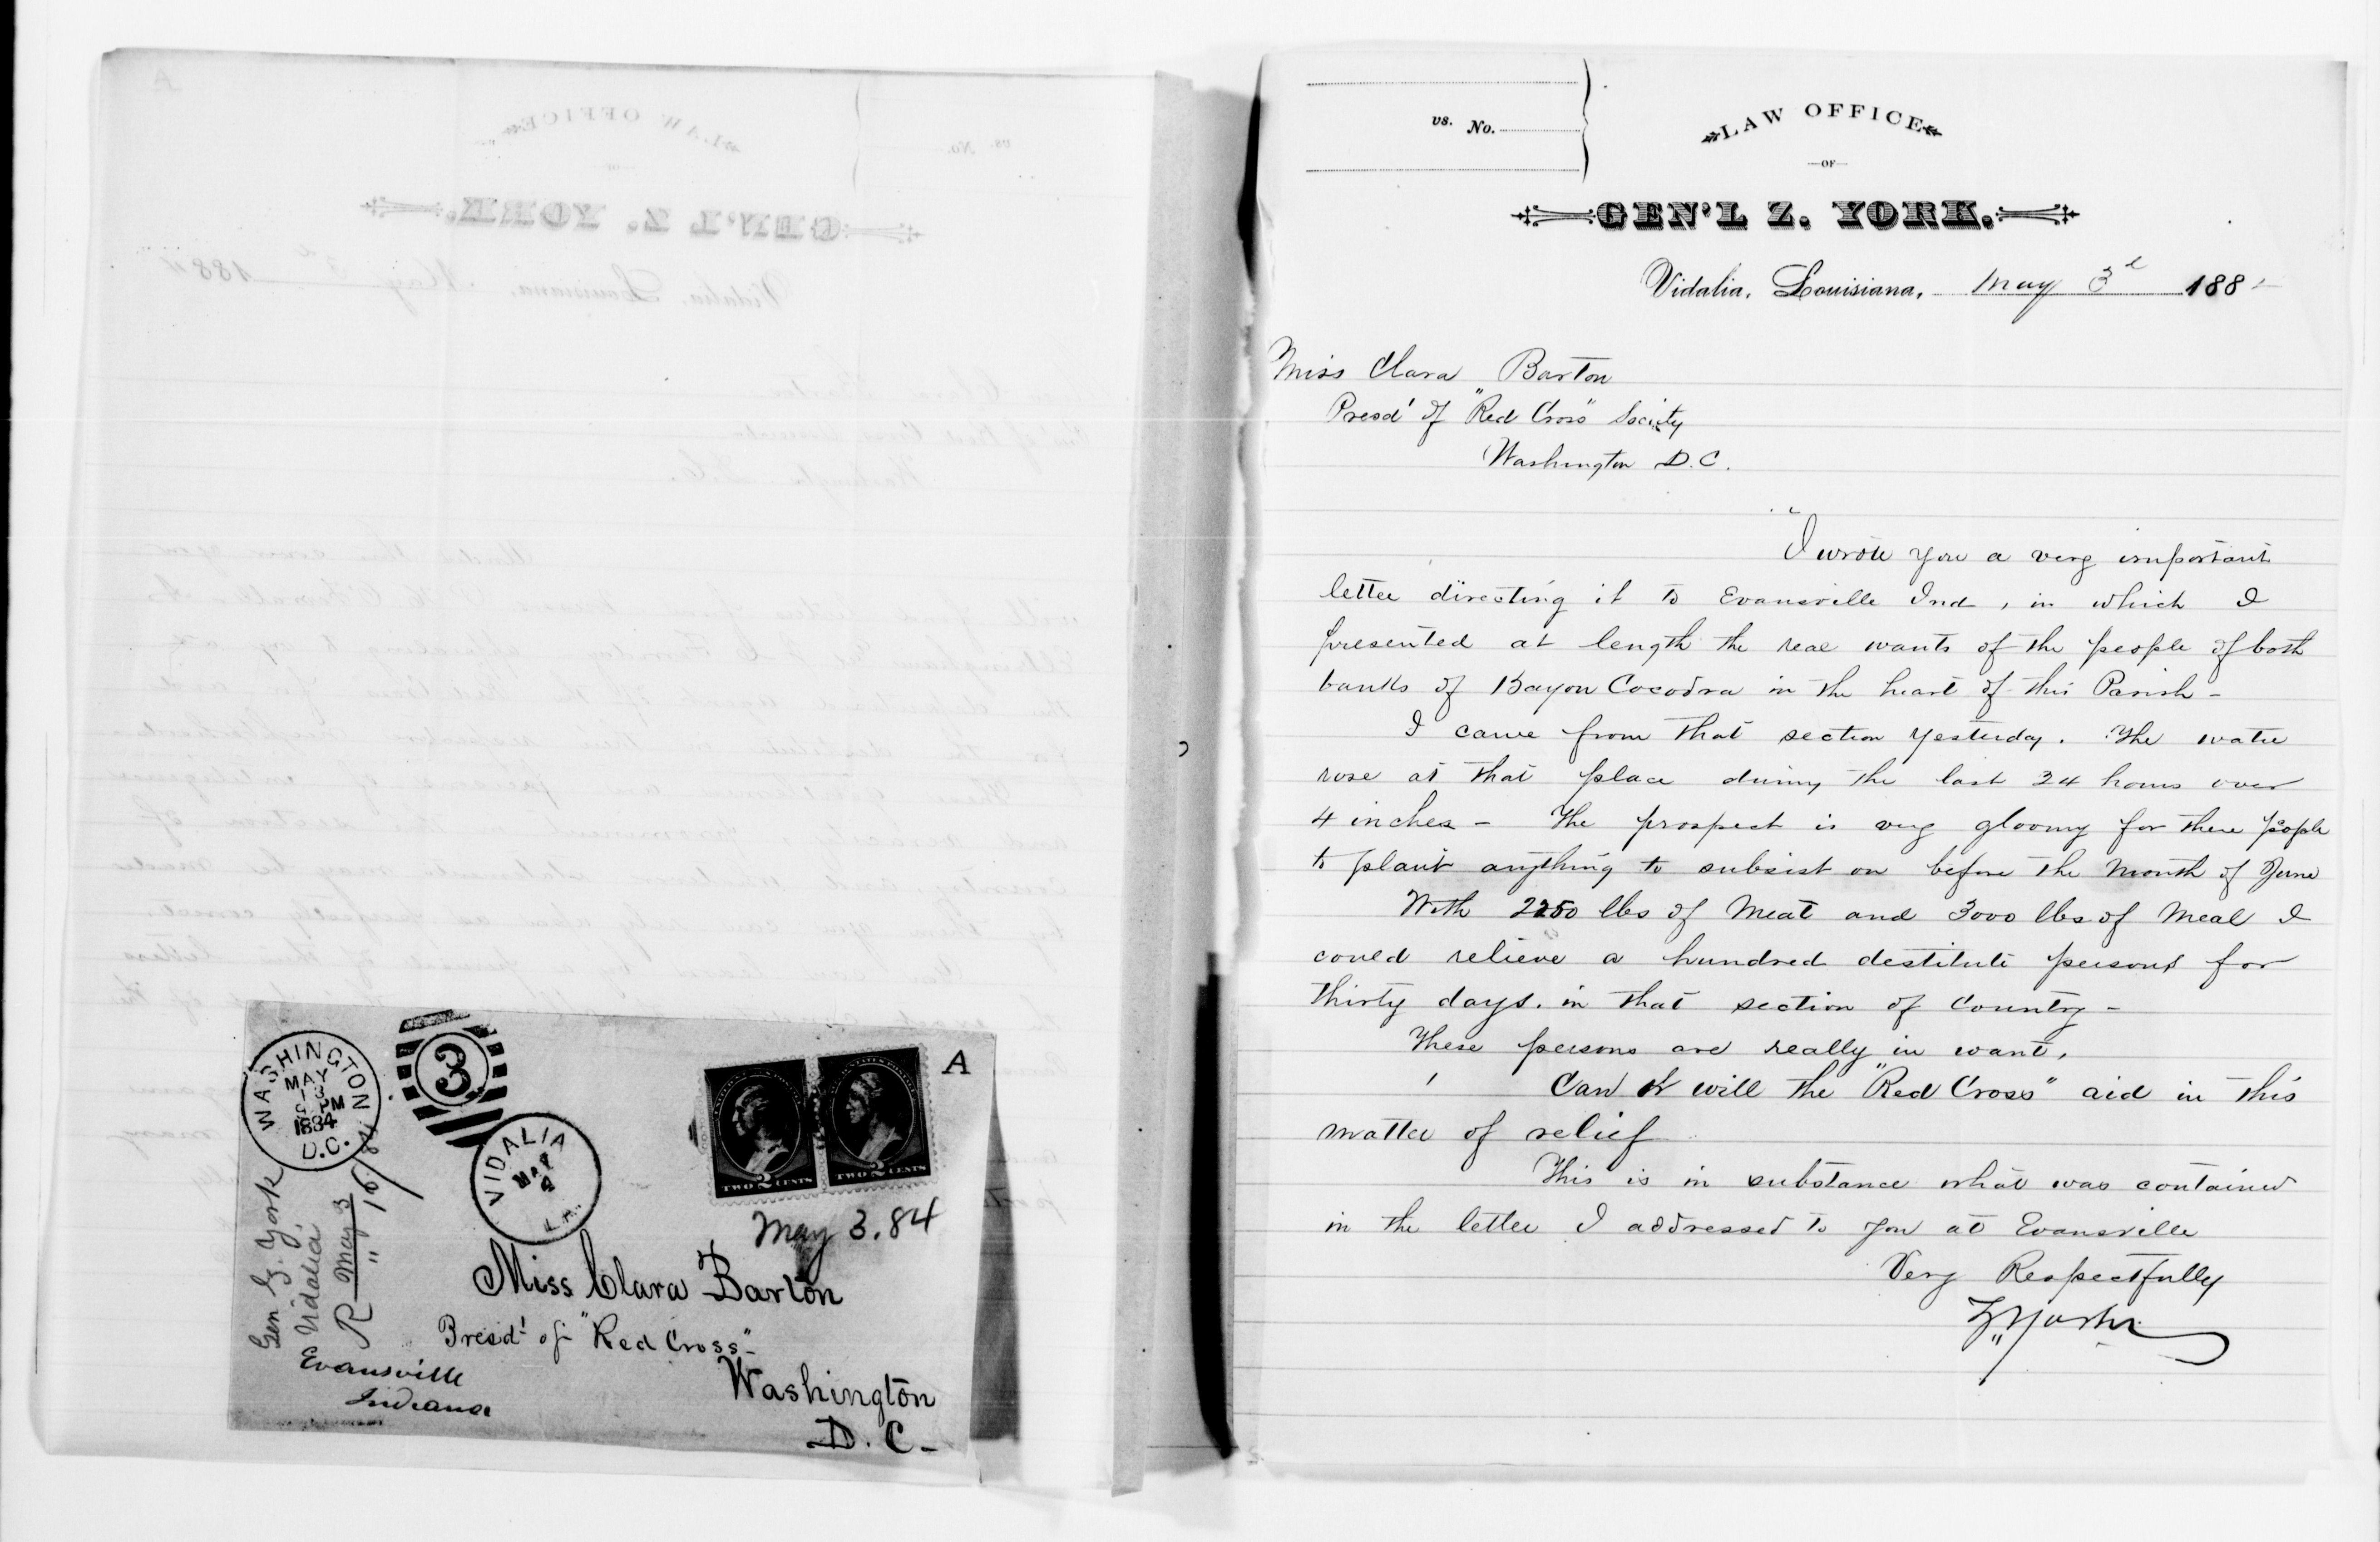 WASHINGTON
MAY
13
PM
1884
D.C.
3
VIDALIA
MAY
4
LA.
A
TWO 2 CENTS
TWO 2 CENTS
May 3. 84
Gen Z. York
Vidalia,
R May 3
" 16/84
Miss Clara Barton
Presdt of "Red Cross"-
Washington
D. C-
Evansville
Indiana
vs. No.
LAW OFFICE
OF
GEN'L Z. YORK.
Vidalia, Louisiana, May 3d 188
Miss Clara Barton
Presdt of "Red Cross" Society
Washington D.C.
I wrote you a very important
letter directing it to Evansville Ind, in which I
presented at length the real wants of the people of both
banks of Bayou Cocodra in the heart of this Parish-
I came from that section yesterday. The water
rose at that place during the last 24 hours over
4 inches- The prospect is very gloomy for these people
to plant anything to subsist on before the month of June
With 2250 lbs of Meat and 3000 lbs of Meal I
could relieve a hundred destitute persons for
thirty days. in that section of Country-
These persons are really in want,
Can or will the "Red Cross" aid in this
matter of relief
This is in substance what was contained
in the letter I addressed to you at Evansville
Very Respectfully
Z York